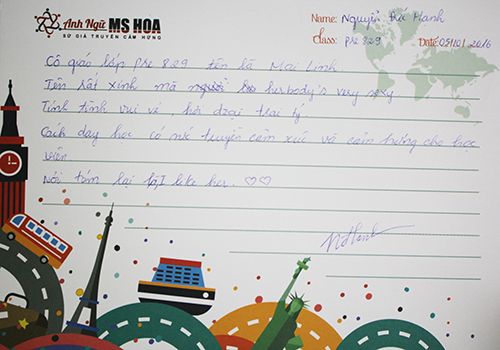 Anh Ngữ MS HOA
SỨ GIẢ TRUYỀN CẢM HỨNG
Name: Nguyễn Đức Hạnh
Class: pre 829 Date: 05/01/2016
Cô giáo lớp pre 829 tên là Mai Linh
Tên rất xinh mà her body's very sexy
Tính tình vui vẻ, hơi
Cách dạy học có sức truyền cảm xúc và cảm hứng cho học
viên
Nói tóm lại I like her. ♡♡